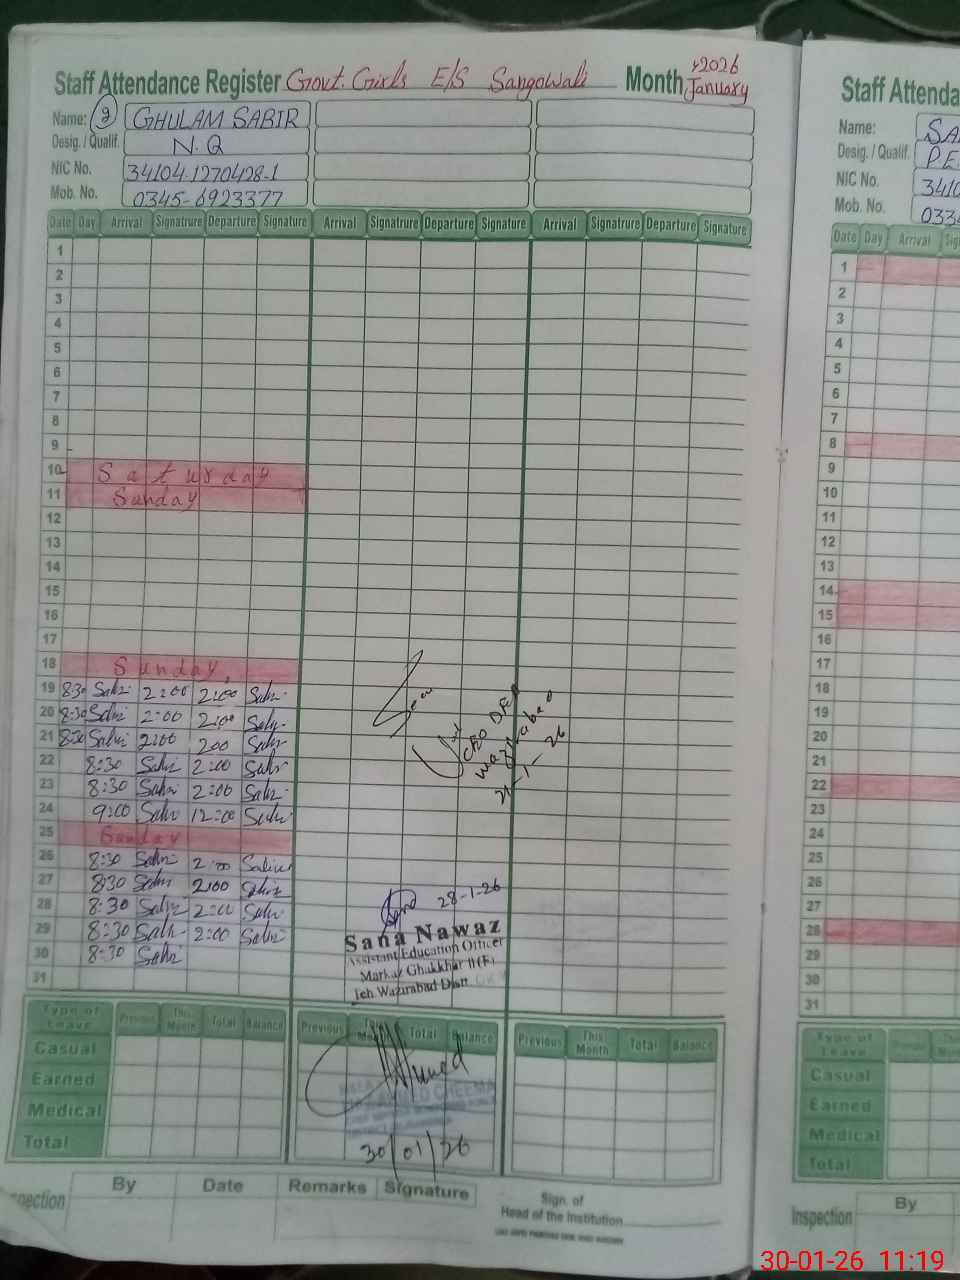 Staff Attendance Register Govt. Girls E/S Sangowali Month January 2026
Name: 2 GHULAM SABIR
Desig. / Qualif. N.Q
NIC No. 34104-1270428-1
Mob. No. 0345-6923377
Date Day Arrival Signatrure Departure Signature Arrival Signatrure Departure Signature Arrival Signatrure Departure Signature
1
2
3
4
5
6
7
8
9
10 Saturday
11 Sunday
12
13
14
15
16
17
18 Sunday
19 8:30 Sabir 2:00 2:00 Sabir
20 8:30 Sabir 2:00 2:00 Sabir
21 8:30 Sabir 2:00 200 Sabir
22 8:30 Sabir 2:00 Sabir
23 8:30 Sabir 2:00 Sabir
24 9:00 Sabir 12:00 Sabir
25 Sunday
26 8:30 Sabir 2:00 Sabir
27 8:30 Sabir 2:00 Sabir
28 8:30 Sabir 2:00 Sabir
29 8:30 Sabir 2:00 Sabir
30 8:30 Sabir
31
Seen
CEO DEA
Wazirabad
21-1-26
28-1-26
Sana Nawaz
Assistant Education Officer
Markaz Ghakkhar II (F)
Teh Wazirabad Distt
Type of Leave Previous This Month Total Balance Previous Total Balance Previous This Month Total Balance
Casual
Earned
Medical
Total
AHMED CHEEMA
30/01/26
By Date Remarks Signature
Sign. of
Head of the Institution
Staff Attenda
Name: SA
Desig. / Qualif. P.E
NIC No. 3410
Mob. No. 033
Date Day Arrival Sig
1
2
3
4
5
6
7
8
9
10
11
12
13
14
15
16
17
18
19
20
21
22
23
24
25
26
27
28
29
30
31
Type of Leave
Casual
Earned
Medical
Total
Inspection By
30-01-26 11:19